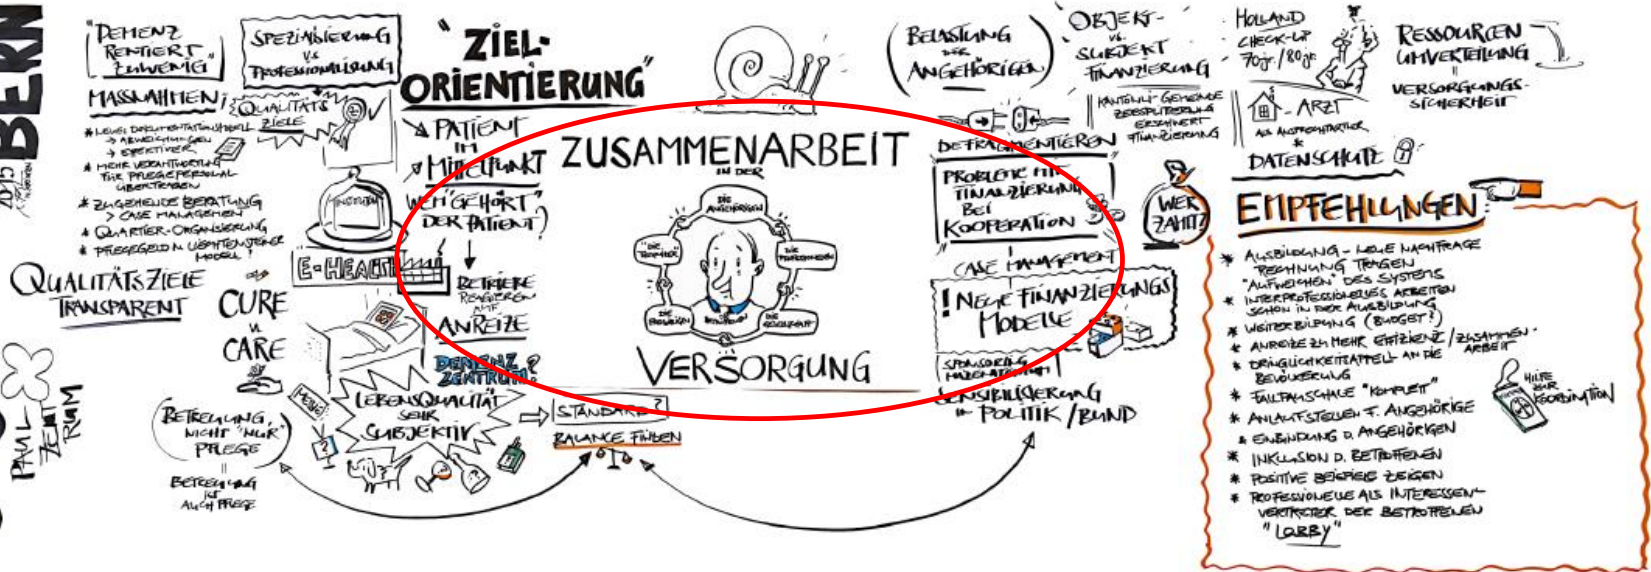 BERN
2015
"DEMENZ
RENTIERT
ZUWENIG"
SPEZIALISIERUNG
VS
PROFESSIONALISIERUNG
MASSNAHMEN
QUALITÄTS
ZIELE
* NEUES DOKUMENTATIONSMODELL
→ ABWEICHUNGEN
→ EFFEKTIVER
* MEHR VERANTWORTUNG
FÜR PFLEGEPERSONAL
ÜBERTRAGEN
* ZUGEHENDE BERATUNG
> CASE MANAGEMENT
* QUARTIER-ORGANISIERUNG
* PFLEGEGELD N. LIECHTENSTEINER
MODELL?
QUALITÄTSZIELE
TRANSPARENT
CURE
VS
CARE
PAUL
ZEN
RUM
(BETREUUNG
NICHT "NUR"
PFLEGE)
=
BETREUUNG
IST
AUCH PFLEGE
"ZIEL-
ORIENTIERUNG"
PATIENT
IM
MITTELPUNKT
INSTITUTION
WEM "GEHÖRT"
DER PATIENT?
E-HEALTH
BETRIEBE
REAGIEREN
AUF
ANREIZE
DEMENZ
ZENTRUM?
LEBENSQUALITÄT
SEHR
SUBJEKTIV
?
STANDARD?
BALANCE FINDEN
ZUSAMMENARBEIT
IN DER
DIE
ANGEHÖRIGEN
DIE
PROFESSIONELLEN
DIE
GESELLSCHAFT
DIE
FREIWILLIGEN
VERSORGUNG
(BELASTUNG
DER
ANGEHÖRIGEN)
OBJEKT-
VS.
SUBJEKT
FINANZIERUNG
KANTON - GEMEINDE
ZERSPLITTERUNG
ERSCHWERT
FINANZIERUNG
DEFRAGMENTIEREN
PROBLEME MIT
FINANZIERUNG
BEI
KOOPERATION
CASE MANAGEMENT
! NEUE FINANZIERUNGS
MODELLE
SPONSORING
SENSIBILISIERUNG
IN POLITIK/BUND
WER
ZAHLT?
HOLLAND
CHECK-UP
70j./80j.
-ARZT
ALS ANSPRECHPARTNER
*
DATENSCHUTZ
RESSOURCEN
UMVERTEILUNG
=
VERSORGUNGS-
SICHERHEIT
EMPFEHLUNGEN
* AUSBILDUNG - NEUE NACHFRAGE
RECHNUNG TRAGEN
"AUFWEICHEN" DES SYSTEMS
* INTERPROFESSIONELLES ARBEITEN
SCHON IN DER AUSBILDUNG
* WEITERBILDUNG (BUDGET?)
* ANREIZE ZU MEHR EFFIZIENZ/ZUSAMMEN-
ARBEIT
* DRINGLICHKEITSAPPELL AN DIE
BEVÖLKERUNG
* FALLPAUSCHALE "KOMPLETT"
* ANLAUFSTELLEN F. ANGEHÖRIGE
* EINBINDUNG D. ANGEHÖRIGEN
* INKLUSION D. BETROFFENEN
* POSITIVE BEISPIELE ZEIGEN
* PROFESSIONELLE ALS INTERESSEN-
VERTRETER DER BETROFFENEN
"LOBBY"
HILFE
ZUR
KOORDINATION